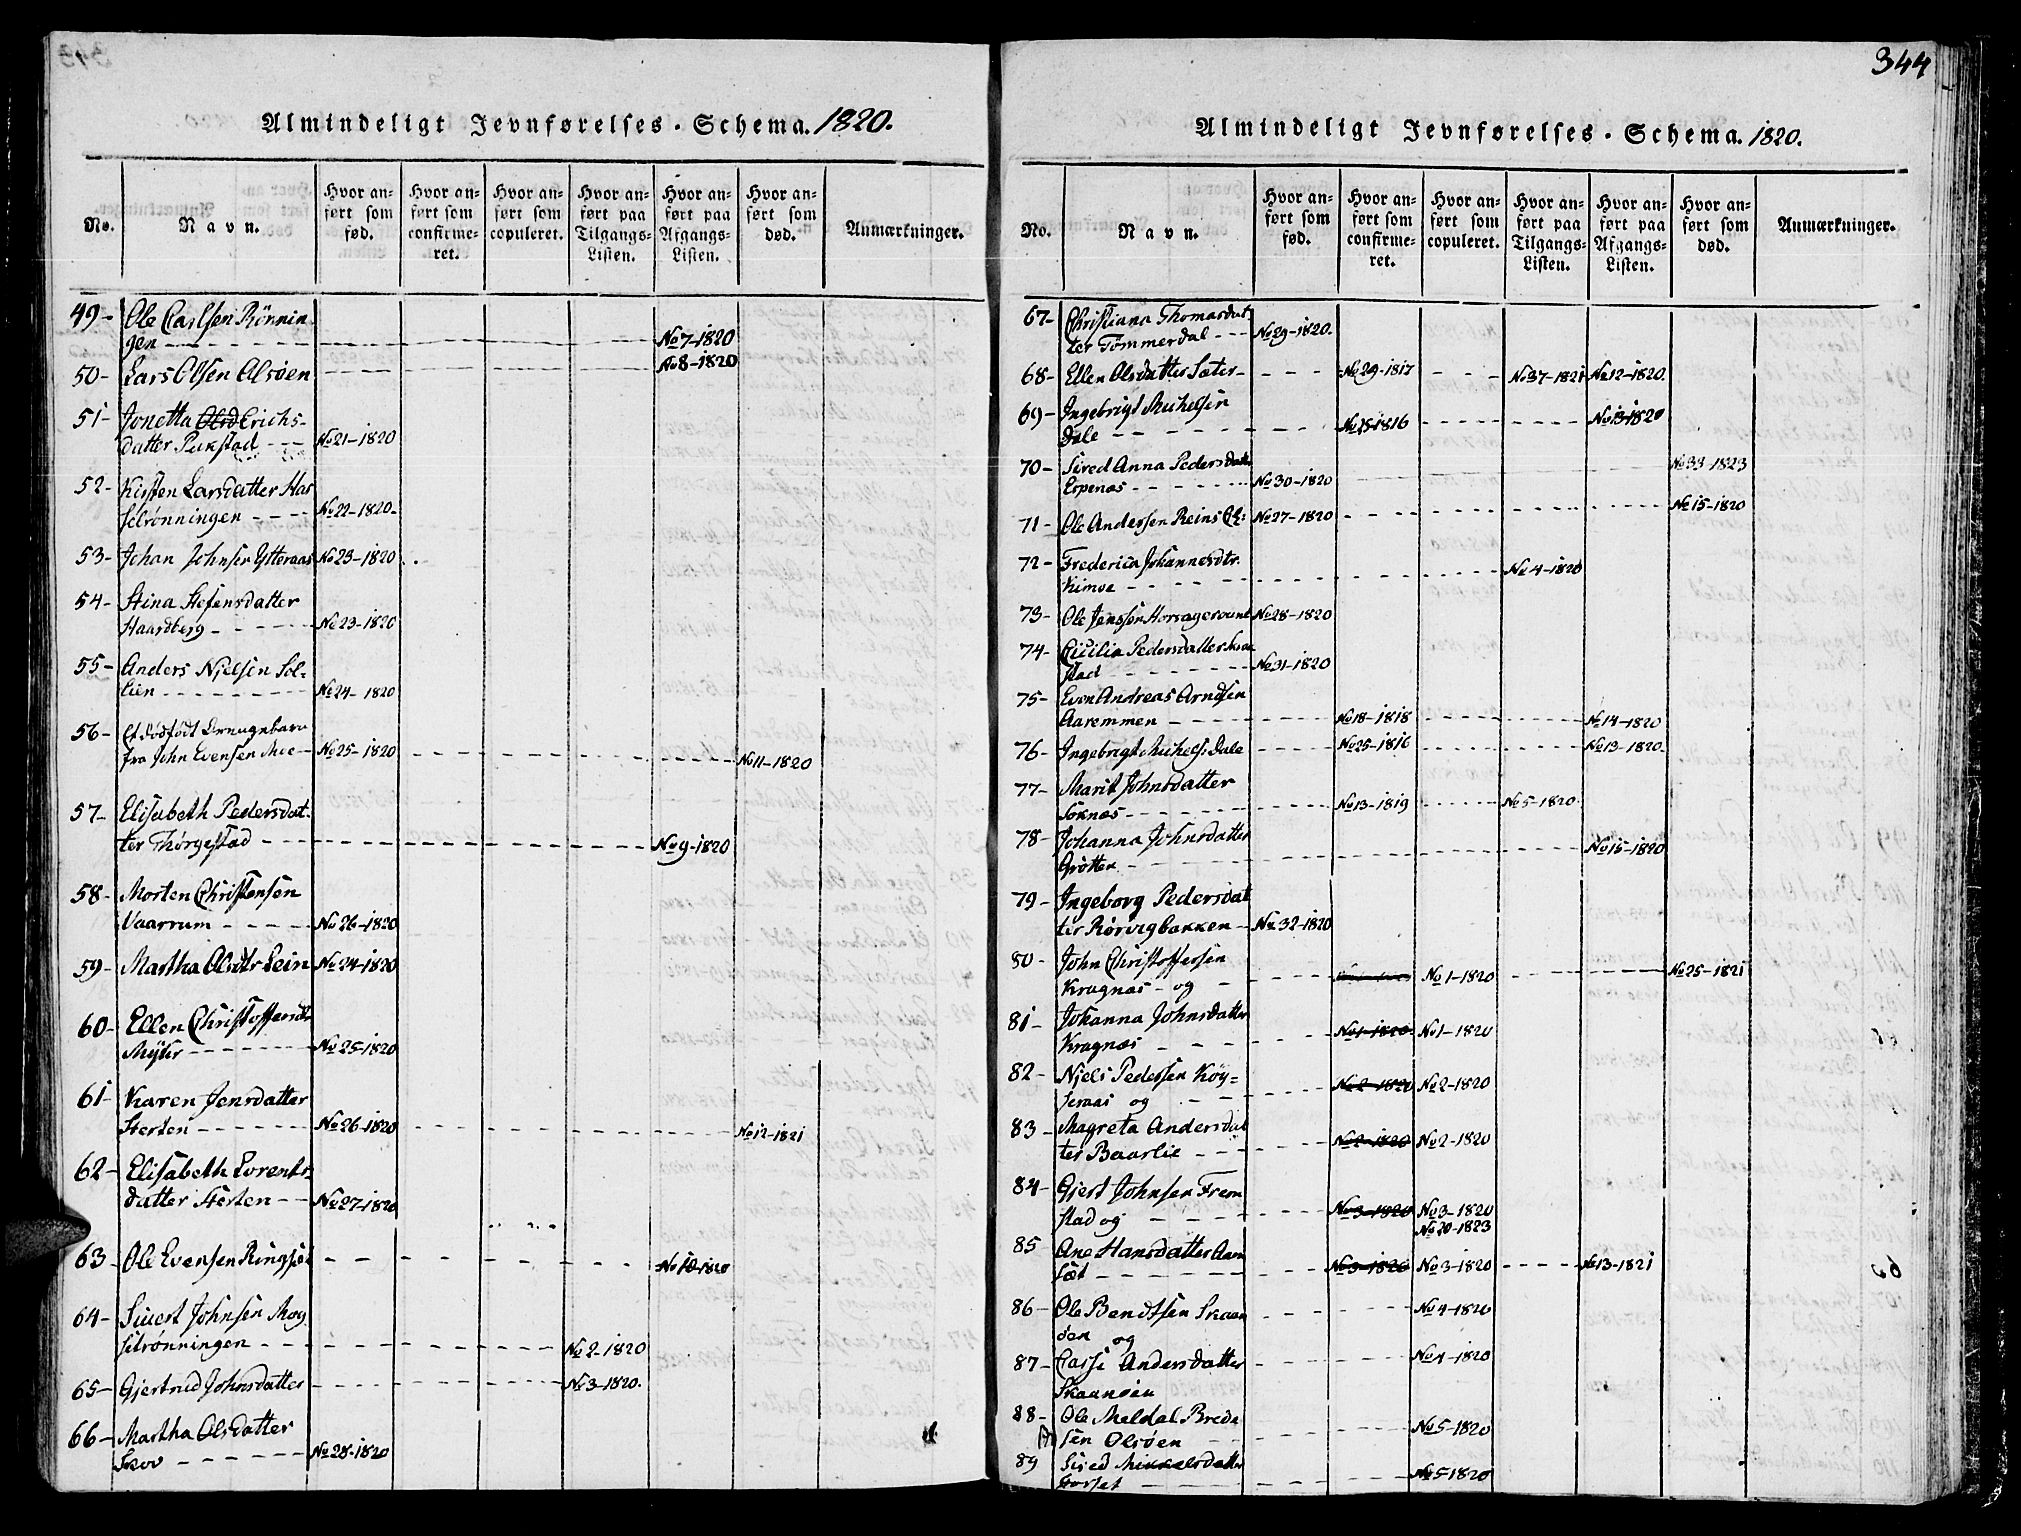 344
Almindeligt Jevnførelses-Schema. 1820.
No.
Navn.
Hvor an-
ført som
fød.
Hvor an-
ført som
confirme-
ret.
Hvor an-
ført som
copuleret.
Hvor an-
ført paa
Tilgangs-
Listen.
Hvor an-
ført paa
Afgangs-
Listen.
Hvor an-
ført som
død.
Anmærkninger.
49- Ole Carlsen Rönnin
gen No 7-1820
50- Lars Olsen Alsøen No 8-1820
51- Jonetta Olsd Erichs-
datter No 21-1820
52- Kirsten Larsdatter Has
selrønningen No 22-1820
53- Johan Johnsen Ytteraas No 23-1820
54- Stina Stefensdatter
Haardberg No 23-1820
55- Anders Njelsen Sol-
lien No 24-1820
56- Et dødfødt
fra John Evensen Moe No 25-1820 No 11-1820
57- Elisabeth Pedersdat-
ter Thørgestad No 9-1820
58- Morten Christensen
Vaarrum No 26-1820
59- Martha Olsdtr Lein No 24-1820
60- Ellen Christoffersdtr
No 25-1820
61- Karen Jensdatter
Sterten No 26-1820 No 12-1821
62- Elisabeth Lorents-
datter Sterten No 27-1820
63- Ole Evensen No 10-1820
64- Siuert Johnsen Moy
selrønningen No 2-1820
65- Gjertrud Johnsdatter No 3-1820.
66- Martha Olsdatter
Skov No 28-1820
Almindeligt Jevnførelses-Schema. 1820.
No.
Navn.
Hvor an-
ført som
fød.
Hvor an-
ført som
confirme-
ret.
Hvor an-
ført som
copuleret.
Hvor an-
ført paa
Tilgangs-
Listen.
Hvor an-
ført paa
Afgangs-
Listen.
Hvor an-
ført som
død.
Anmærkninger.
67- Christiana Thomasdat
ter Tømmerdal No 29-1820.
68- Ellen Olsdatter Sæter No 29-1817 No 37-1821 No 12-1820.
69- Ingebrigt Michelsen
Dale No 15-1816 No 13-1820
70- Sired Anna Pedersdatter
Espenæs No 30-1820 No 33-1823
71- Ole Andersen Reins No 27-1820 No 15-1820
72- Frederica Johannesdtr.
Kimoe No 4-1820
73- Ole Jenssen No 28-1820
74- Cicilia Pedersdatter
stad No 31-1820
75- Even Andreas Arndsen
Aaremmen No 18-1818 No 14-1820
76- Ingebrigt Michels: Dale No 25-1816 No 13-1820.
77- Marit Johnsdatter
Soknæs No 13-1819 No 5-1820
78- Johanna Johnsdatter
Grøtten No 15-1820
79- Ingeborg Pedersdat
ter Rørvigbakken No 32-1820
80- John Christoffersen
Kragnæs og No 1-1820 No 25-1821
81- Johanna Johnsdatter
Kragnæs No 1-1820. No 1-1820
82- Njels Pedersen Køy-
seraas og No 2-1820 No 2-1820
83- Magreta Andersdat
ter Baarlie No 2-1820 No 2-1820
84- Gjert Johnsen Frem
stad og No 3-1820 No 3-1820
No 20-1823
85 Ane Hansdatter Aam
sæt No 3-1820 No 3-1820 No 13-1821
86- Ole Bendtsen Skaan
øen og No 4-1820
87- Andersdatter
Skaanøen No 4-1820
88- Ole Meldal Brede
sen Olsøen No 5-1820
89 Sired Mikkelsdatter
No 5-1820